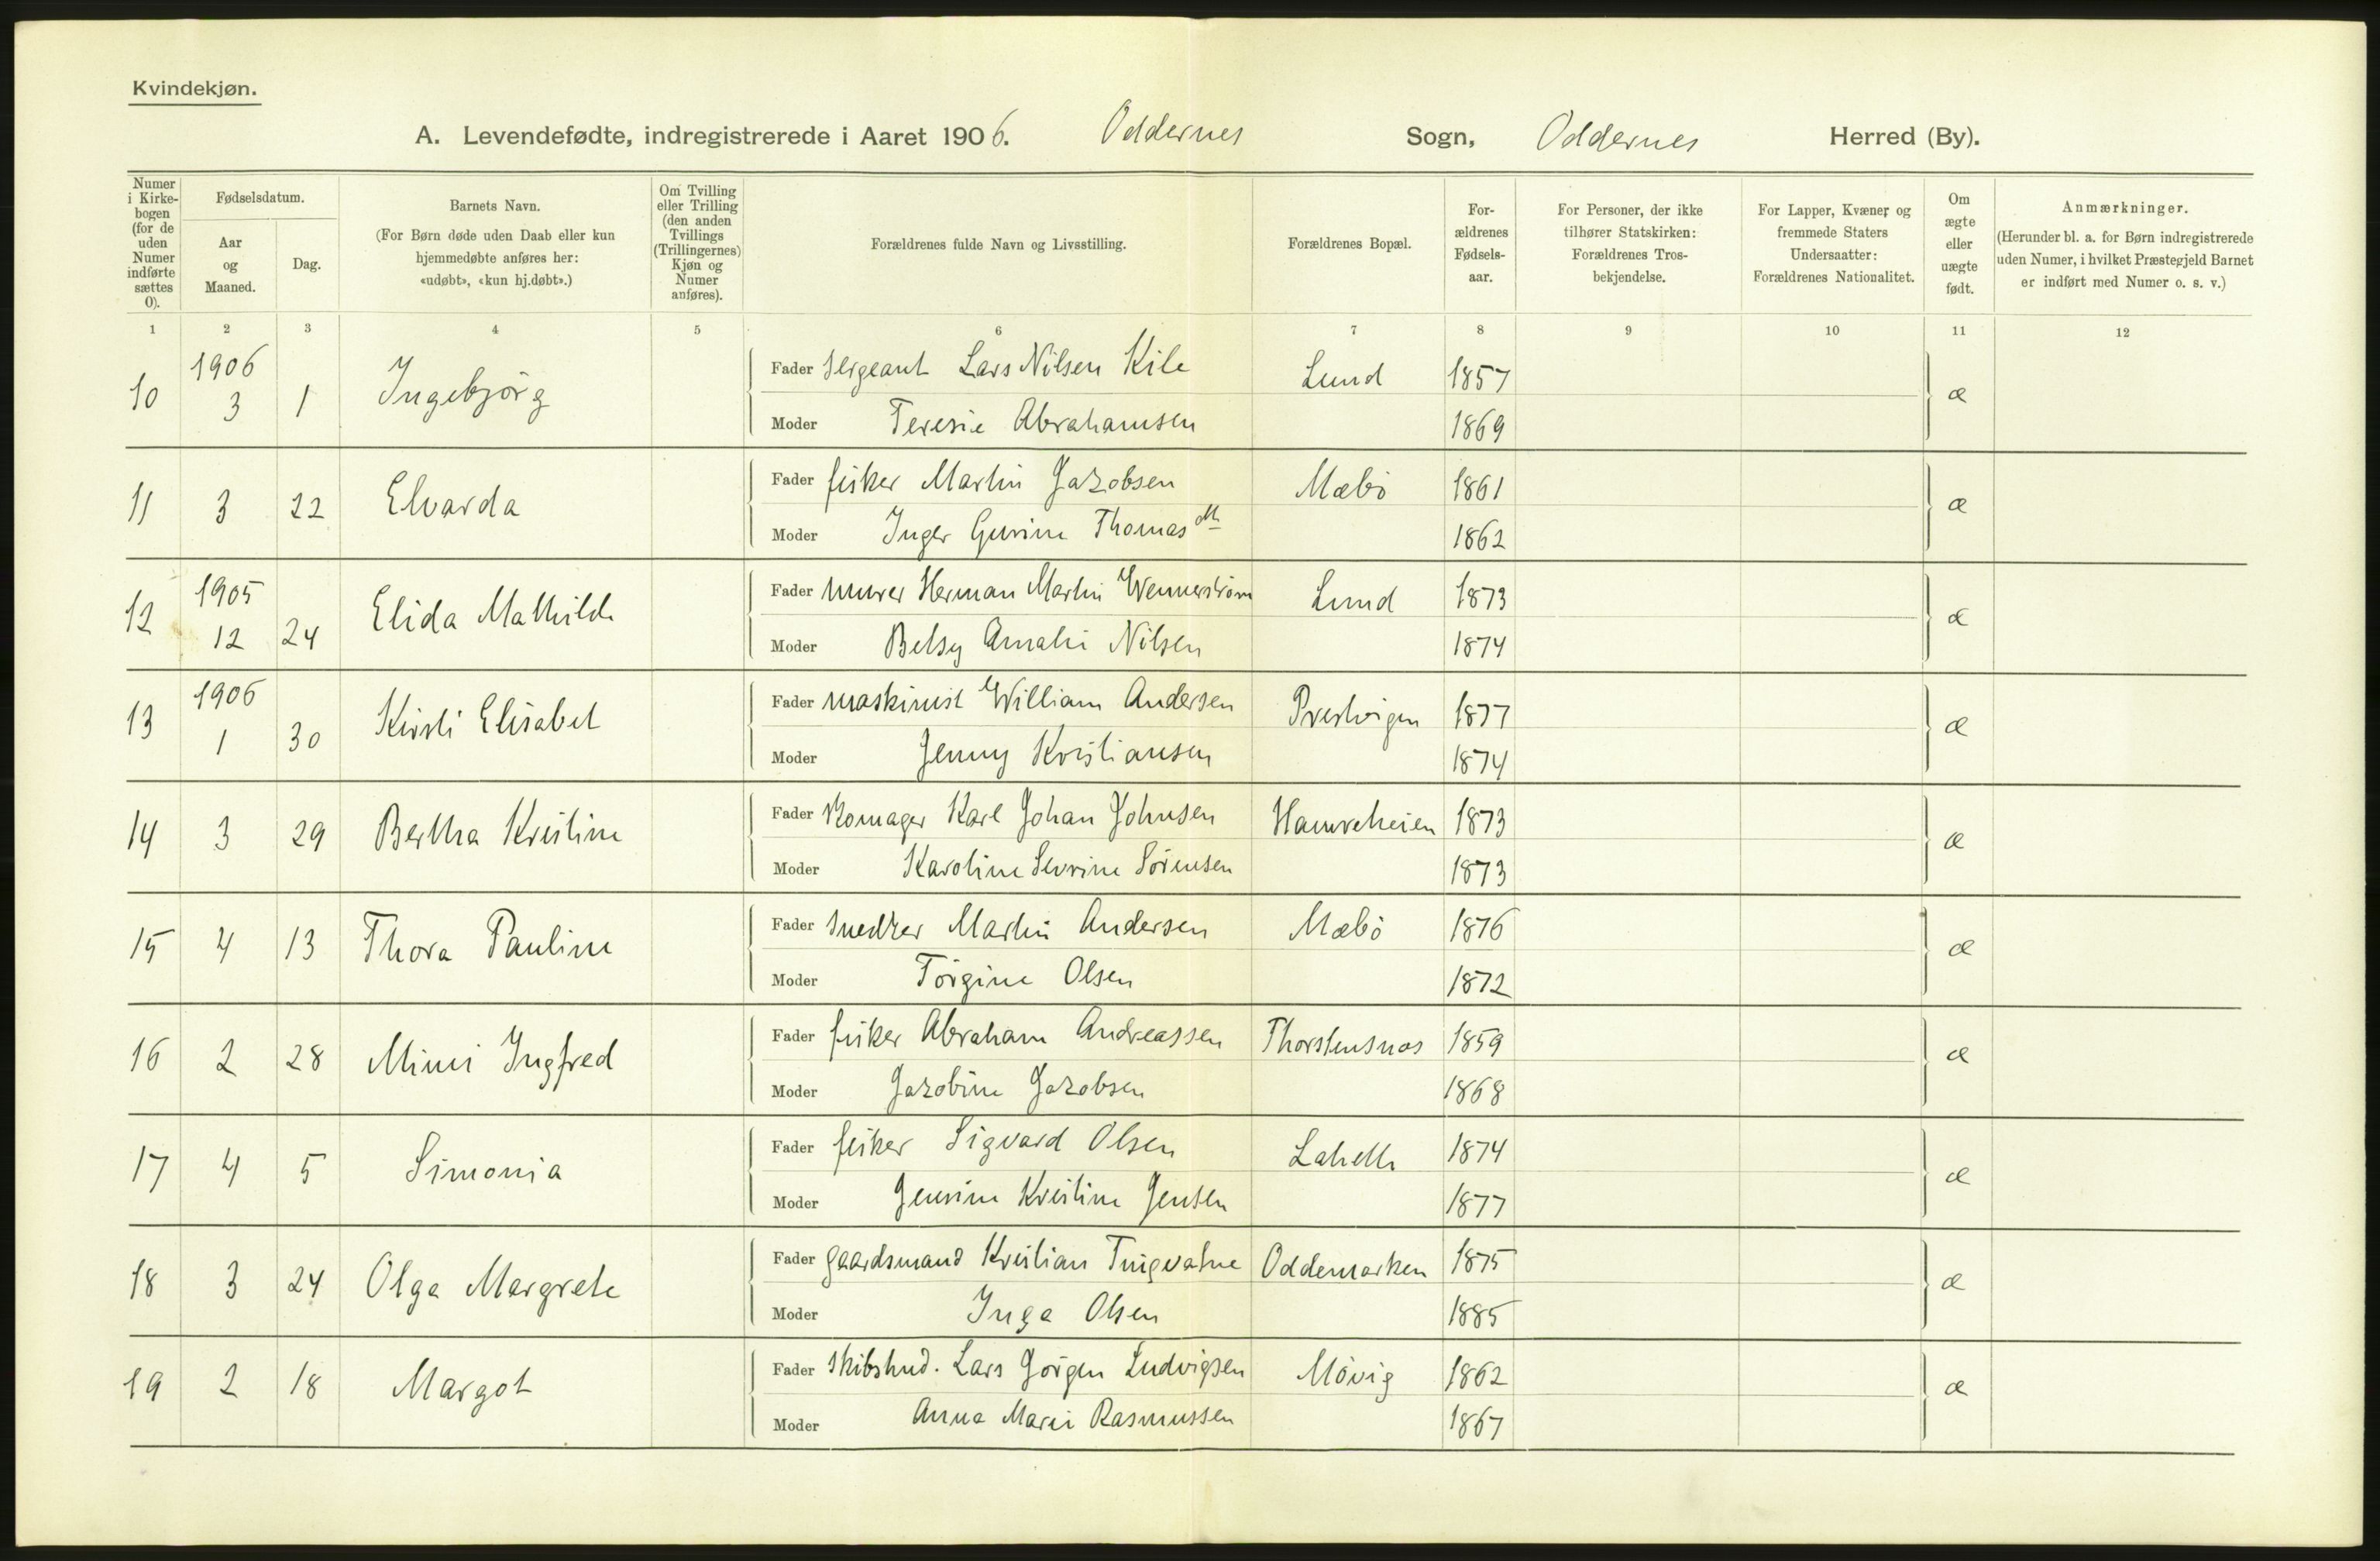 Kvindekjøn.
A. Levendefødte, indregistrerede i Aaret 1906. Oddernes Sogn, Oddernes Herred (By).
Numer i Kirkebogen (for de uden Numer indførte sættes 0).
Fødselsdatum.
Aar og Maaned.
Dag.
Barnets Navn.
(For Børn døde uden Daab eller kun hjemmedøbte anføres her: «udøbt», «kun hj.døbt».)
Om Tvilling eller Trilling (den anden Tvillings (Trillingernes) Kjøn og Numer anføres).
Forældrenes fulde Navn og Livsstilling.
Forældrenes Bopæl.
For-ældrenes Fødsels-aar.
For Personer, der ikke tilhører Statskirken: Forældrenes Tros-bekjendelse.
For Lapper, Kvæner og fremmede Staters Undersaatter: Forældrenes Nationalitet.
Om ægte eller uægte født.
Anmærkninger.
(Herunder bl. a. for Børn indregistrerede uden Numer, i hvilket Præstegjeld Barnet er indført med Numer o. s. v.)
1 2 3 4 5 6 7 8 9 10 11 12
10 1906 3 1 Ingebjörg Fader Sergeant Lars Nilsen Kile Lund 1857 æ
Moder Teresie Abrahamsen 1869
11 3 22 Elvarda Fader fisker Martin Jakobsen Mæbö 1861 æ
Moder Inger Gurine Thomas dtt 1862
12 1905 12 24 Elida Mathilde Fader murer Herman Martin Wennerström Lund 1873 æ
Moder Betsy Amalie Nilsen 1874
13 1906 1 30 Kirsti Elisabet Fader maskinist William Andersen Prestvigen 1877 æ
Moder Jenny Kristiansen 1874
14 3 29 Bertha Kristine Fader skomager Karl Johan Johnsen Hamreheien 1873 æ
Moder Karoline Severine Sörensen 1873
15 4 13 Thora Pauline Fader snedker Martin Andersen Mæbö 1876 æ
Moder Törgine Olsen 1872
16 2 28 Mimi Ingfred Fader fisker Abraham Andreassen Thorstensnes 1859 æ
Moder Jakobine Jakobsen 1868
17 4 5 Simonia Fader fisker Sigvard Olsen Lahelle 1874 æ
Moder Jensine Kristine Jensen 1877
18 3 24 Olga Margrete Fader gaardsmand Kristian Tingvatne Oddemarken 1875 æ
Moder Inga Olsen 1885
19 2 18 Margot Fader skibstmd. Lars Jörgen Ludvigsen Mövig 1862 æ
Moder Anna Marie Rasmussen 1867